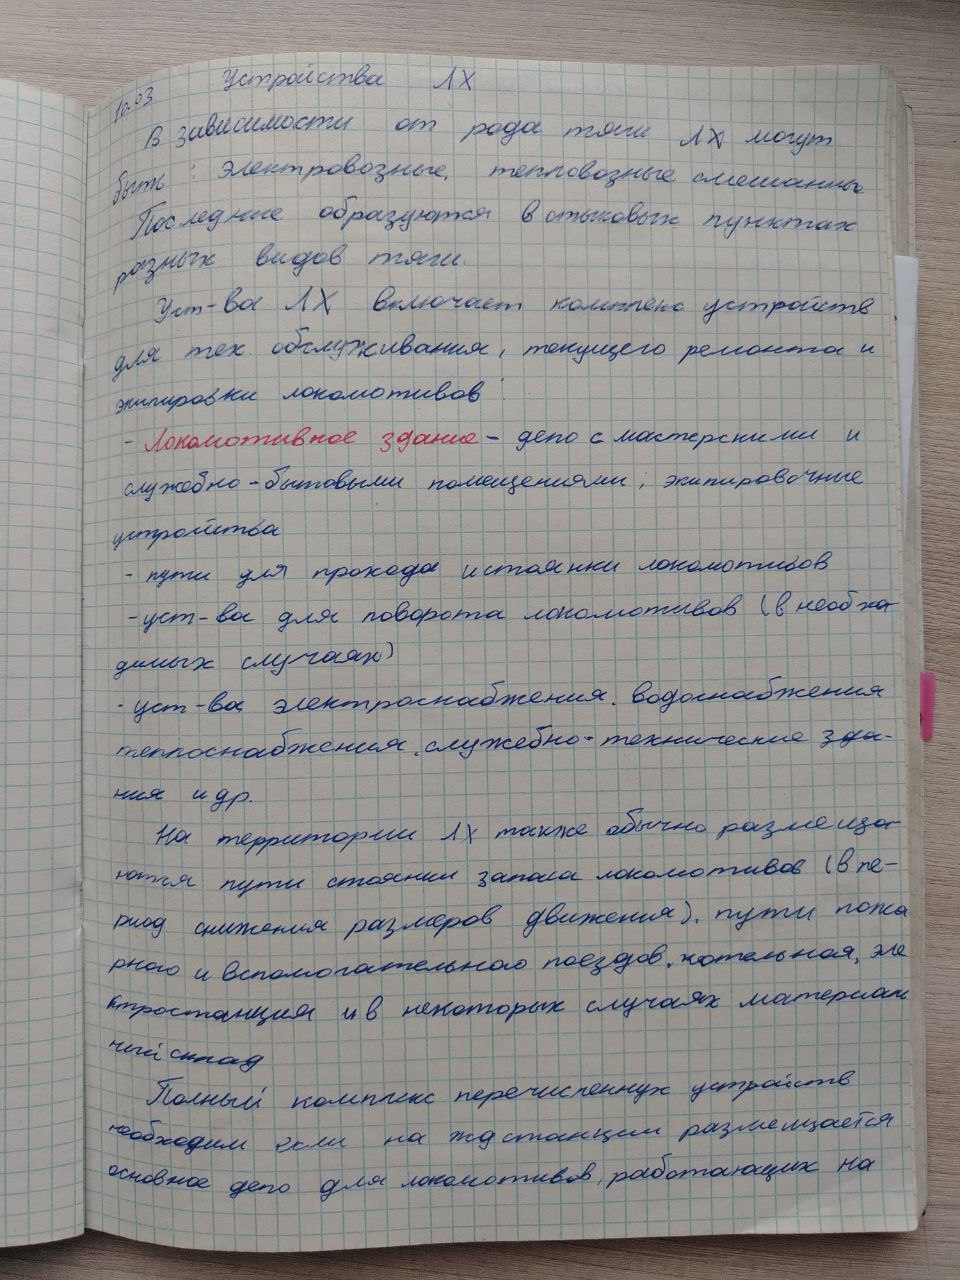 10.03 Устройства ЛХ
В зависимости от рода тяги ЛХ могут
быть: электровозные, тепловозные смешанные
Последние образуются в стыковых пунктах
разных видов тяги.
Уст-ва ЛХ включает комплекс устройств
для тех. обслуживания, текущего ремонта и
экипировки локомотивов:
- Локомотивное здание - депо с мастерскими и
служебно-бытовыми помещениями; экипировочные
устройства
- пути для прохода и стоянки локомотивов
- уст-ва для поворота локомотивов (в необхо-
димых случаях)
- уст-ва электроснабжения, водоснабжения
теплоснабжения, служебно-технические зда-
ния и др.
На территории ЛХ также обычно размеща-
ются пути стоянки запаса локомотивов (в пе-
риод снижения размеров движения), пути пожа
рного и вспомогательного поездов, котельная, эле
ктростанция и в некоторых случаях материаль
ный склад
Полный комплекс перечисленных устройств
необходим если на жд станции размещается
основное депо для локомотивов, работающих на